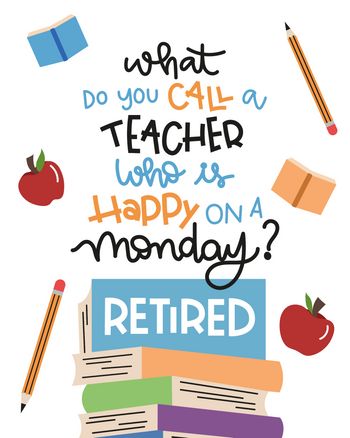 what
DO YOU CALL a
TEACHER
who is
HaPPY ON A
monday?
RETiRED